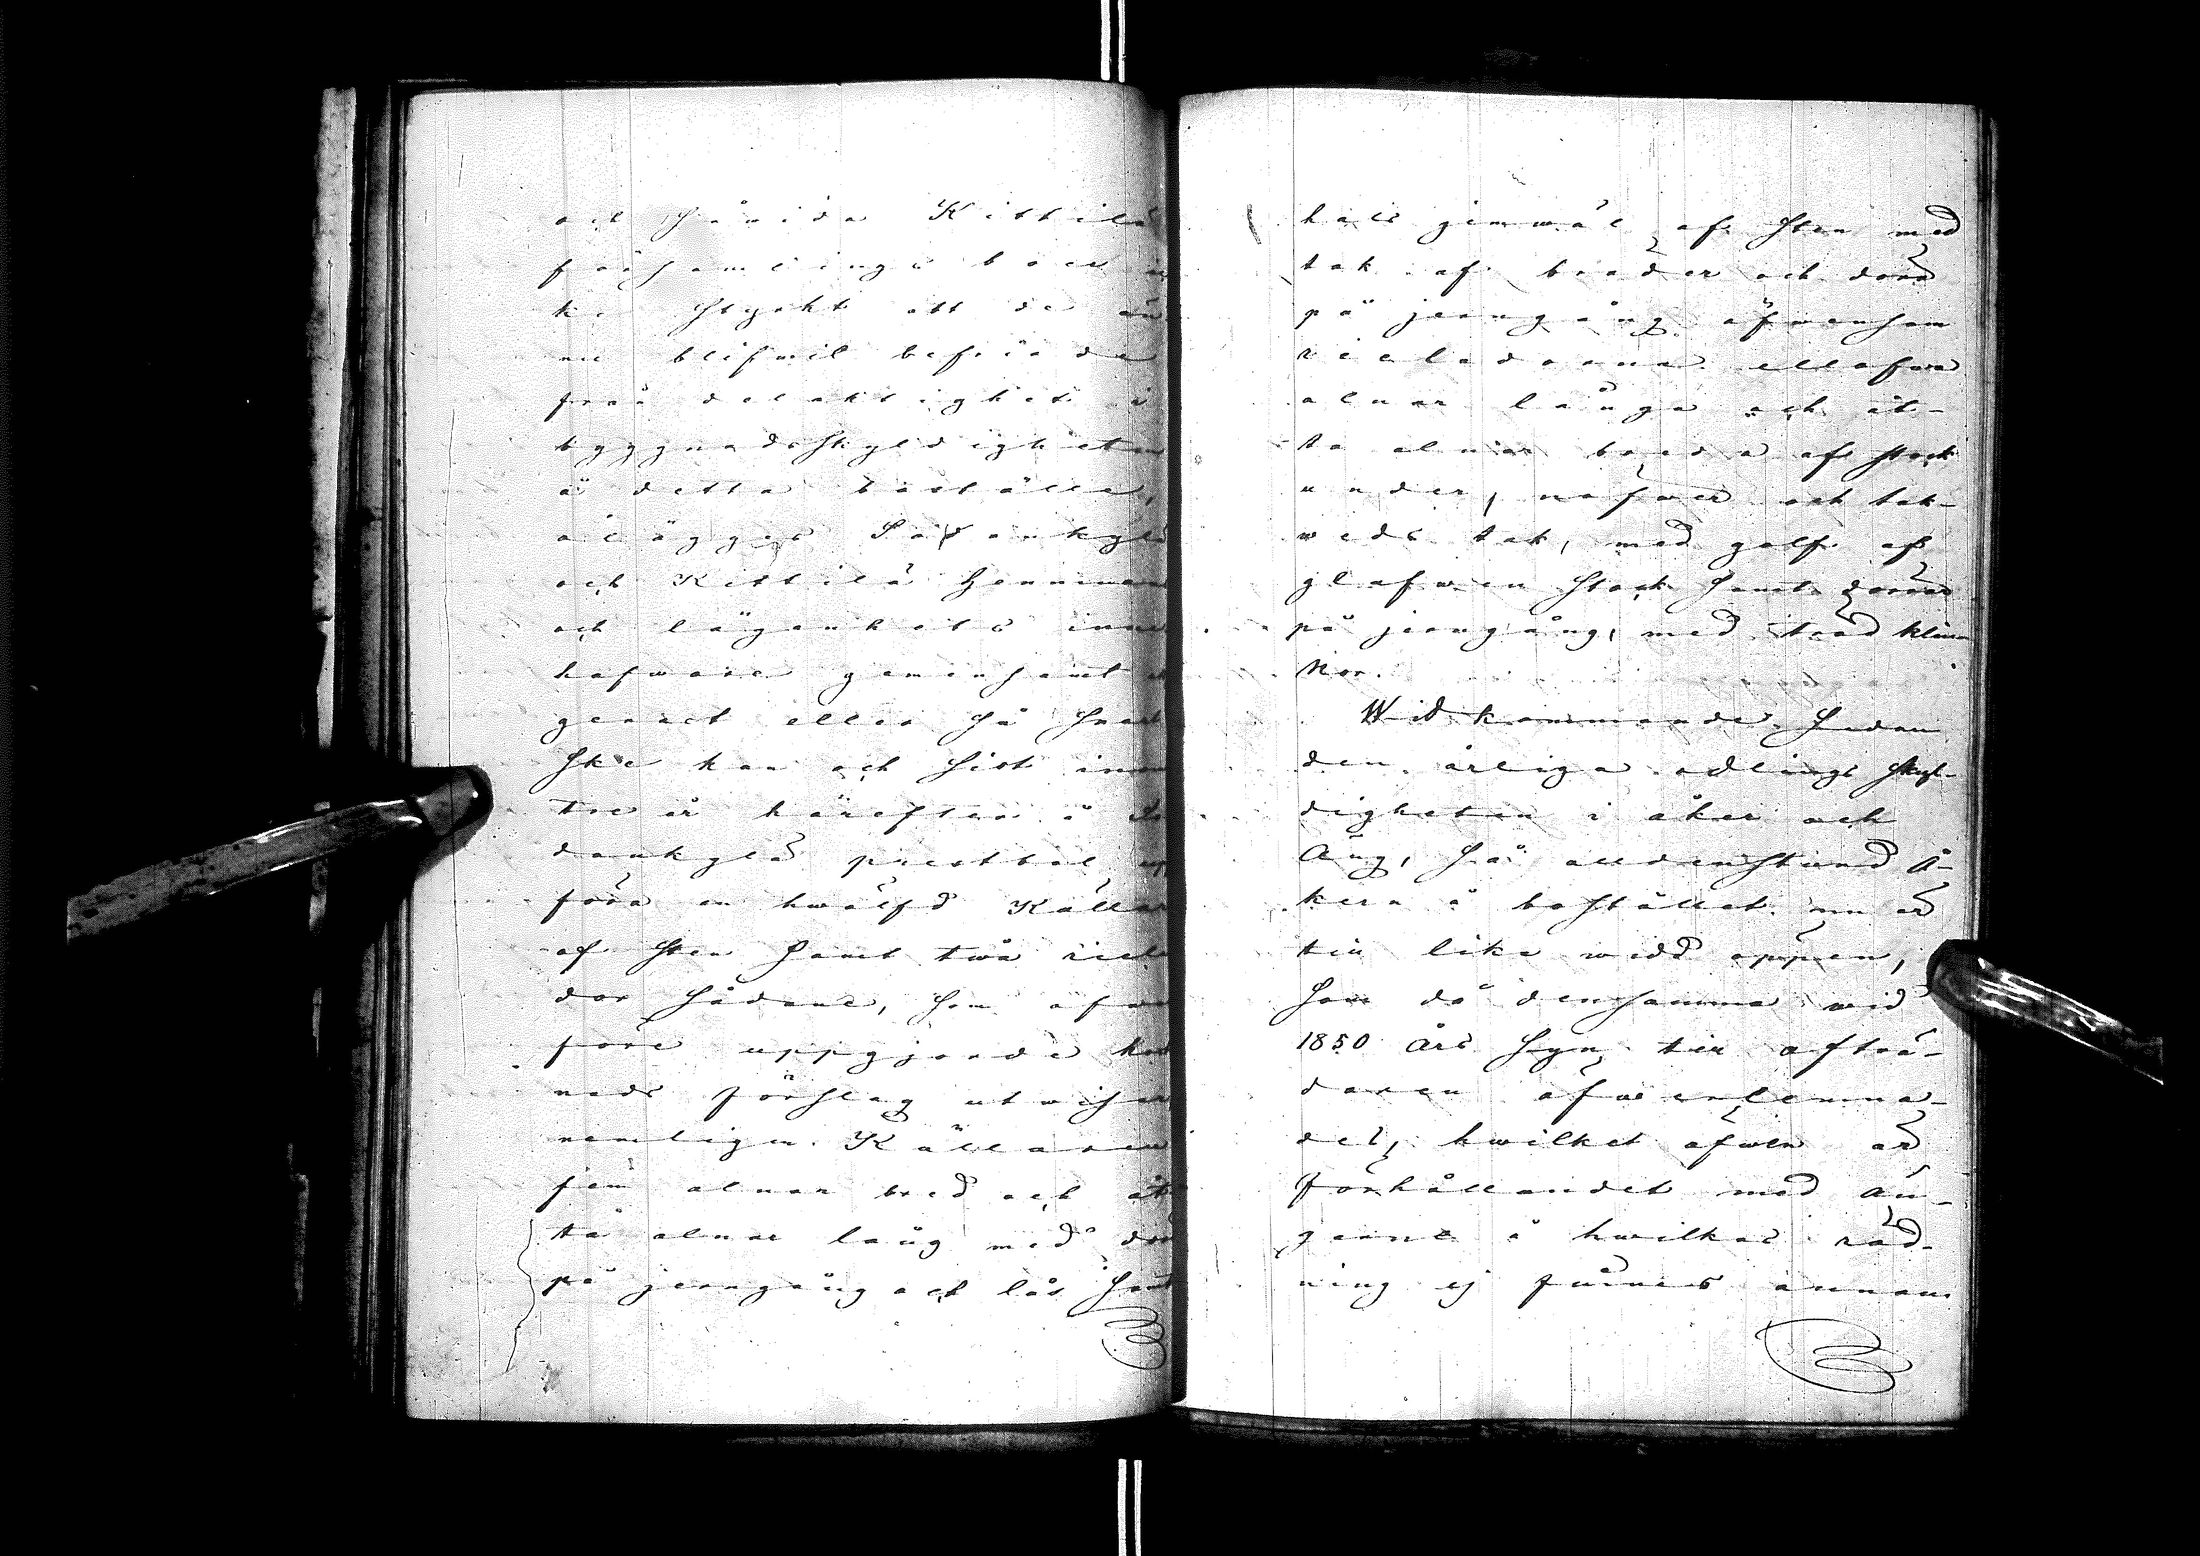 och sånida Kittilä
församlings boer
ke styrkt att de än
nu blifwit befriade
från delaktighet i
byggnadsskyldigheten
å detta boställe,
ålägges Sodankylä
och Kittilä hemmans
och lägenhets inne
hafware gemensamt
genast eller så snart
ske kan och sist inom
tre år härefter å So
dankylä prestbol upp
föra en hwälfd Källare
af sten samt twå rielä
dor sådane, som äfwen
före uppgjorde kost
nads förslag utwisar
nemligen Källaren
fem alnar bred och åt
ta alnar lång med dörr
på jerngång och lås samt
hals gemwäl af sten med
tak af bräder och dörr
på jerngång äfwensom
rieladorna ellofwa
alnar långa och åt-
ta alnar breda af stock
under, näfwer och tak-
weds tak, med golf af
klofwen stock samt dörrar
på jerngång, med träd klin
kor.
Widkommande sedan
den årliga odlings skyl-
digheten i åker och
Äng, så alldenstund å-
kern å bostället nu är
till lika widd öppen,
som då densamma wid
1850 års syn till afträ-
daren öfwerlemna-
des, hwilket äfwen är
förhållandet med än-
garne å hwilkas röd-
ning ej funnes annan